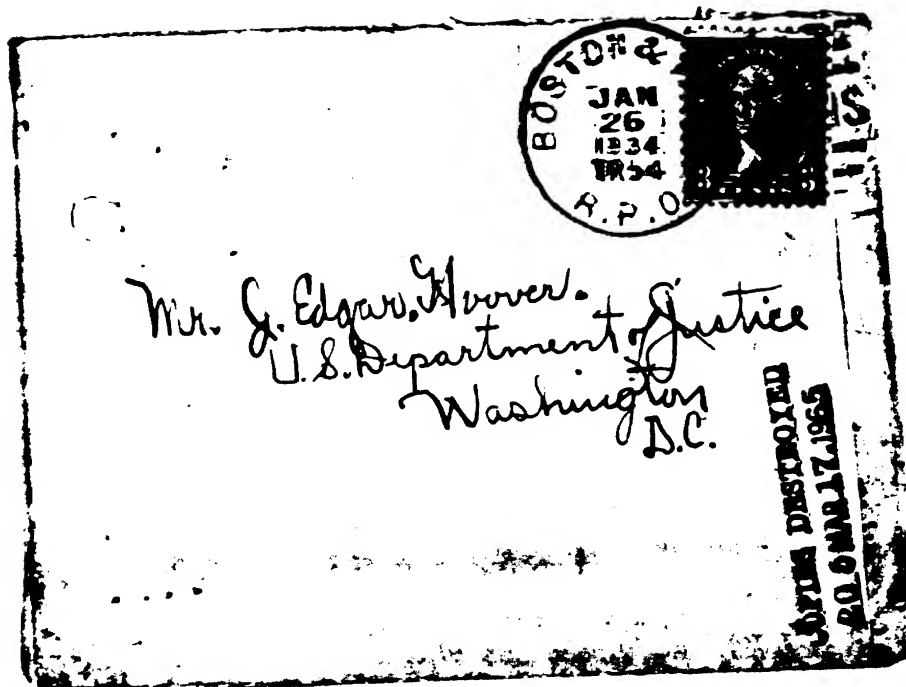 BOSTON &
JAN
26
1934
R.P.O
Mr. J. Edgar. Hoover.
U.S. Department of Justice
Washington
D.C.
COPIES DESTROYED
200 MAR 17 1965